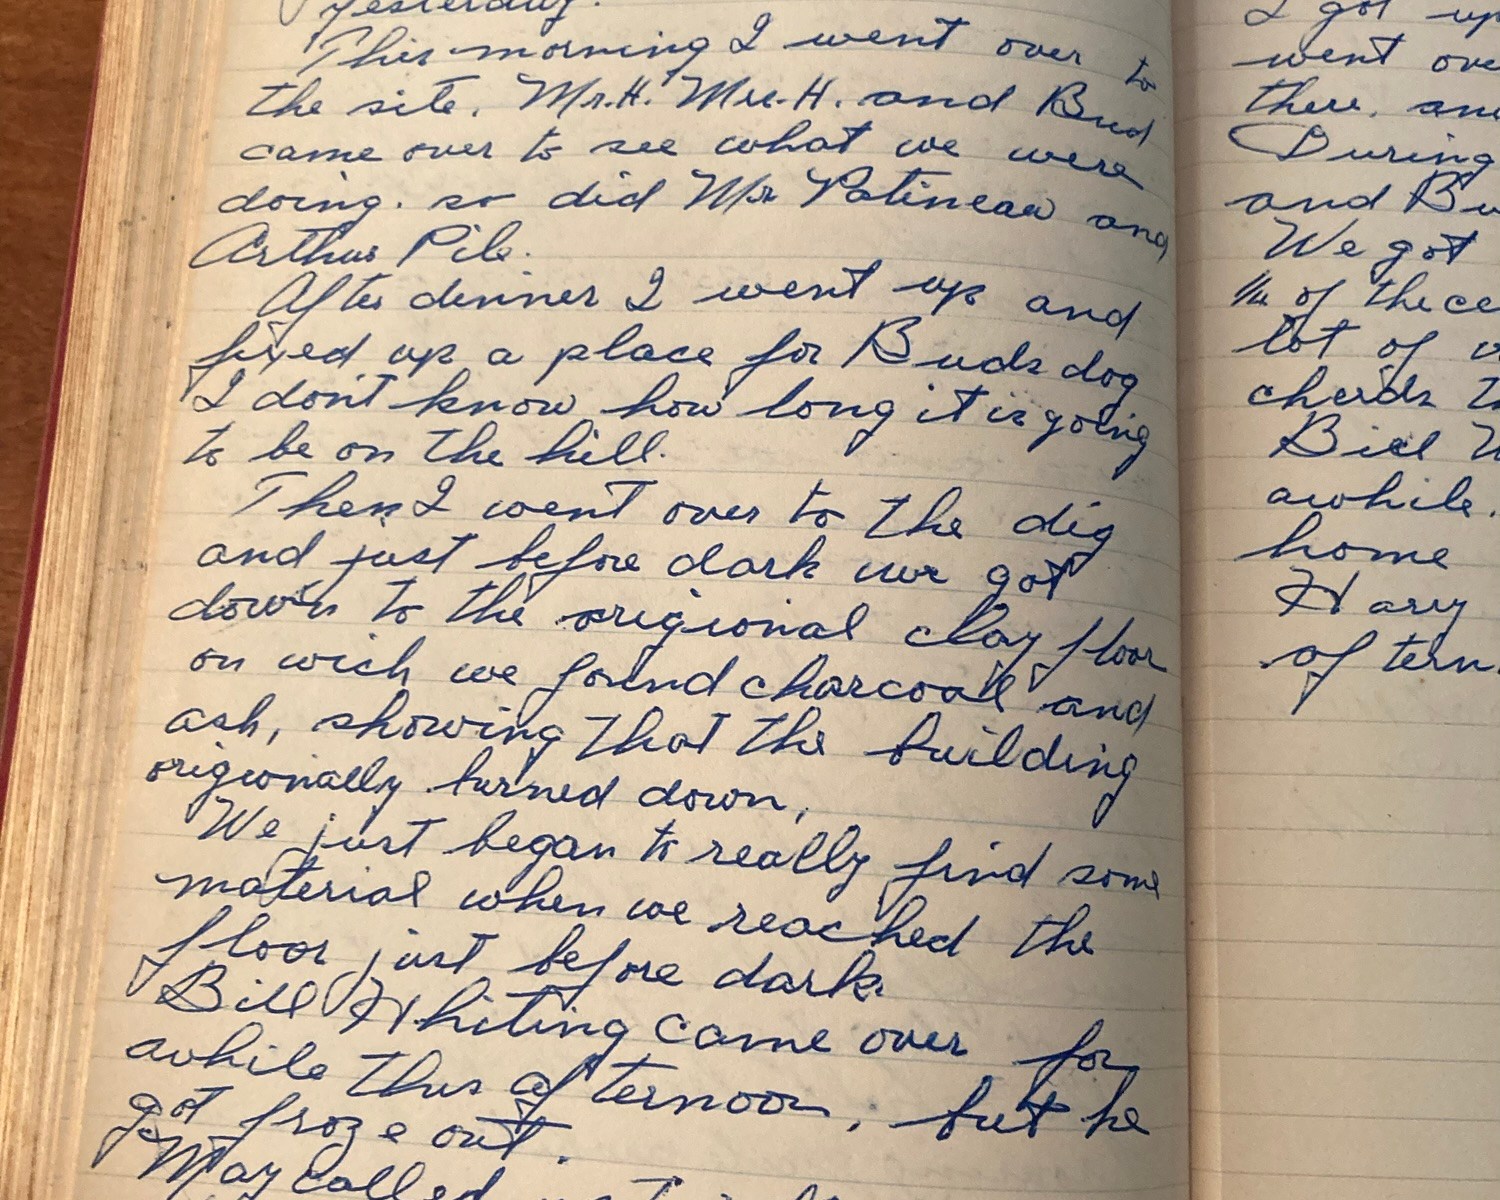 yesterday.
This morning I went over to
the site. Mr. H. Mrs. H. and Bud
came over to see what we were
doing. so did Mr Patineau and
Arthur Pile.
After dinner I went up and
fixed up a place for Buds dog
I don't know how long it is going
to be on the hill.
Then I went over to the dig
and just before dark we got
down to the origional clay floor
on wich we found charcoal and
ash, showing that the building
origionally burned down.
We just began to really find some
material when we reached the
floor just before dark.
Bill Whiting came over for
awhile this afternoon, but he
got froze out.
May called
I got up
went ove
there. and
During
and Bu
We got
of the ce
lot of
cherds
Bill W
awhile.
home
Harry
of tern